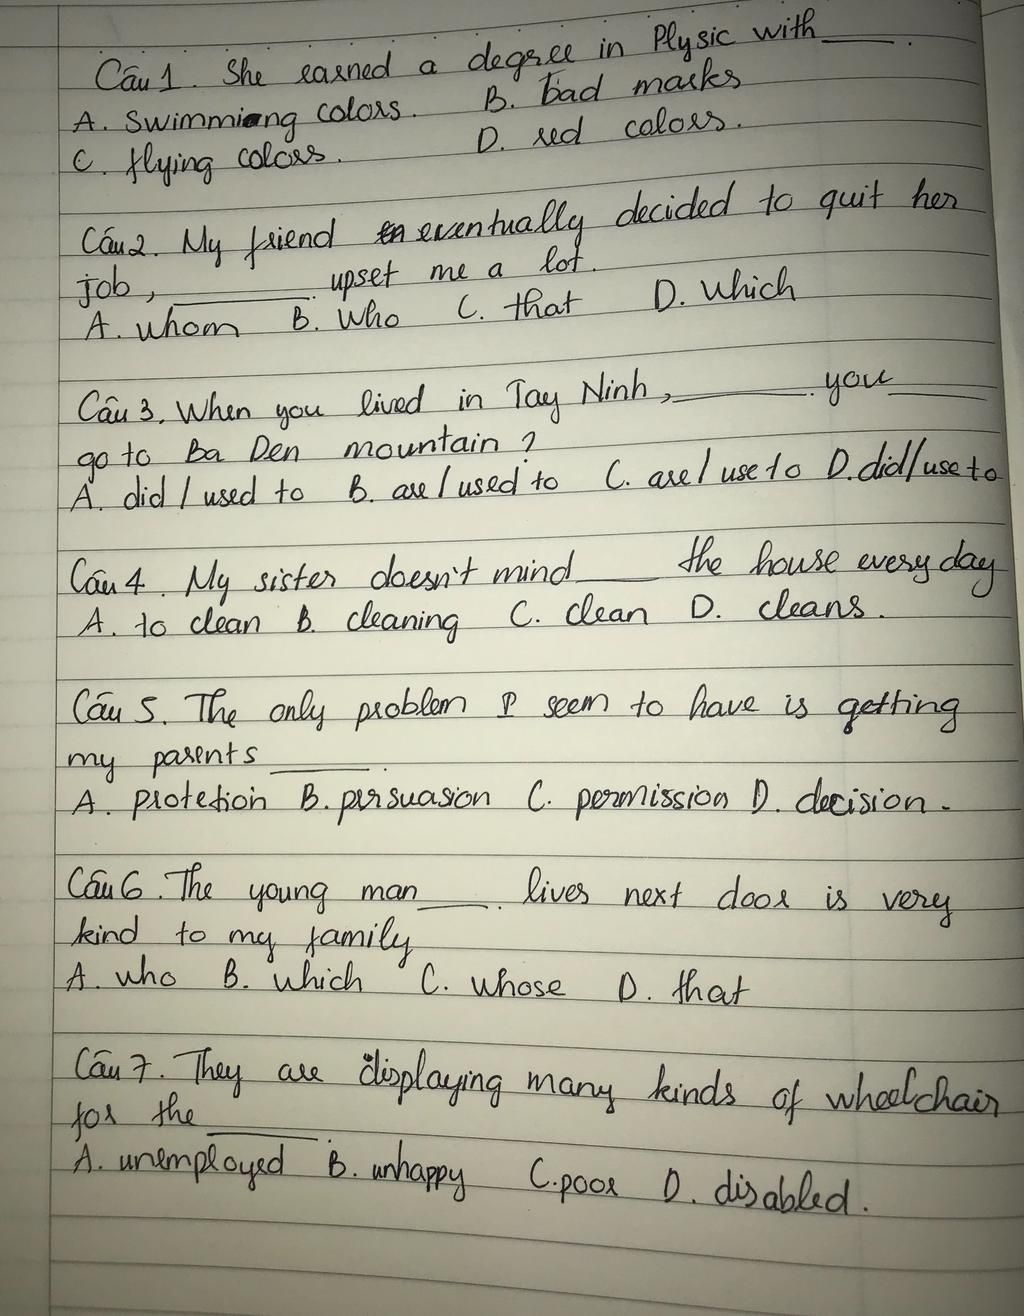 Câu 1. She earned a degree in Plysic with ____.
A. Swimmiang colors. B. bad marks
C. flying colors. D. red colors.
Câu 2. My friend eventually decided to quit her
job, ________. upset me a lot.
A. whom B. Who C. that D. which
Câu 3. When you lived in Tay Ninh, ________. you ______
go to Ba Den mountain?
A. did / used to B. are / used to C. are / use to D. did / use to
Câu 4. My sister doesn't mind ____ the house every day
A. to clean B. cleaning C. clean D. cleans.
Câu 5. The only problem I seem to have is getting
my parents ______.
A. protetion B. persuasion C. permission D. decision.
Câu 6. The young man ____. lives next door is very
kind to my family
A. who B. which C. whose D. that
Câu 7. They are displaying many kinds of wheelchair
for the ______.
A. unemployed B. unhappy C. poor D. disabled.